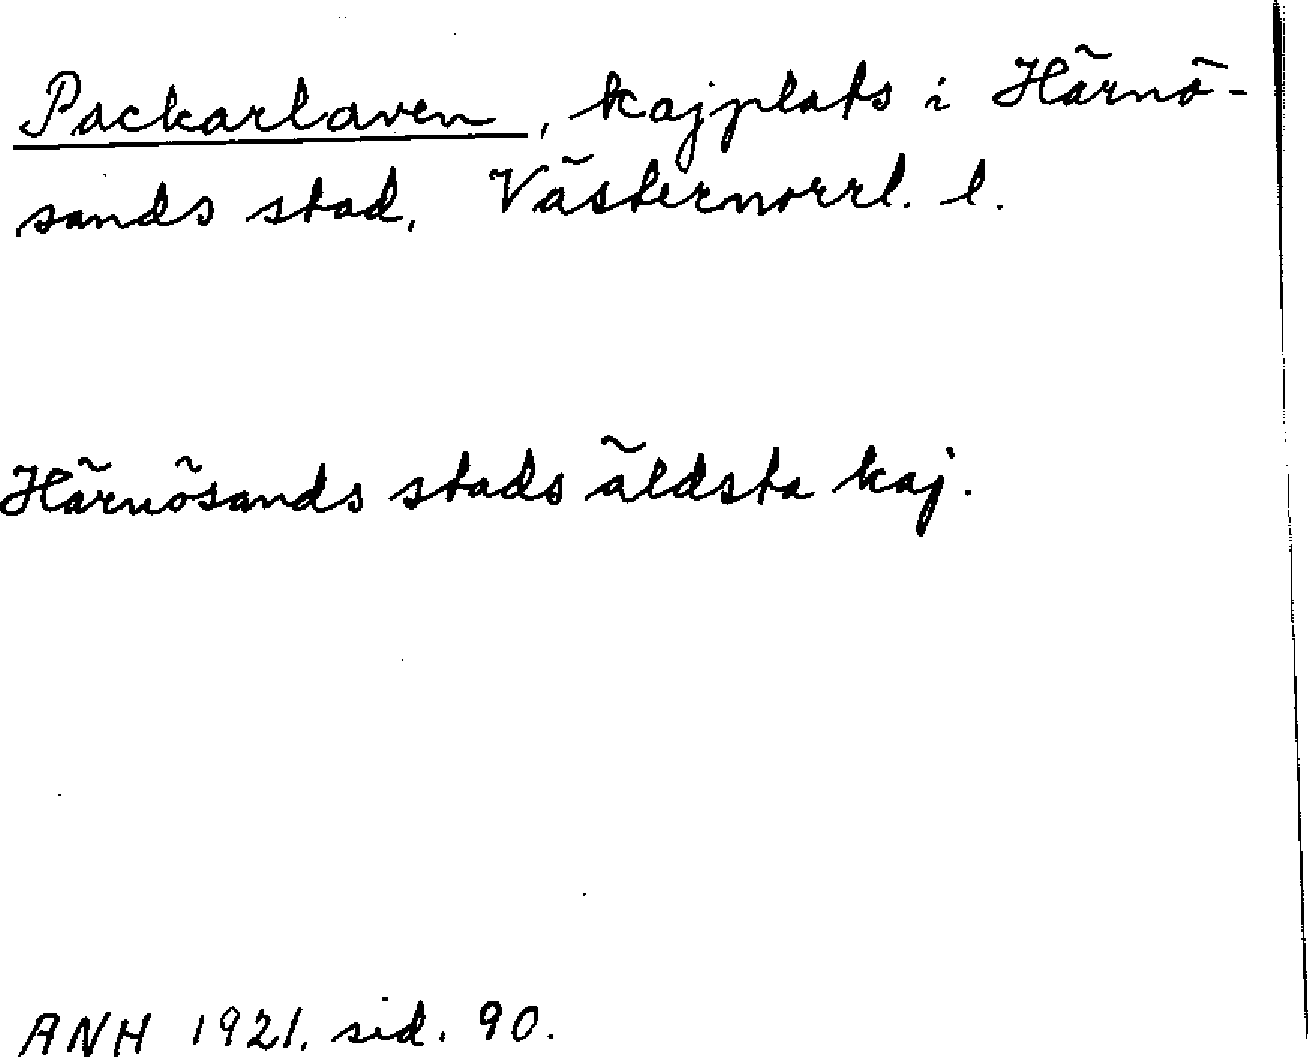 Packarlaven, kajplats i Härnö-
sands stad, Västernorrl. l.
Härnösands stads äldsta kaj.
ANH 1921. sid. 90.